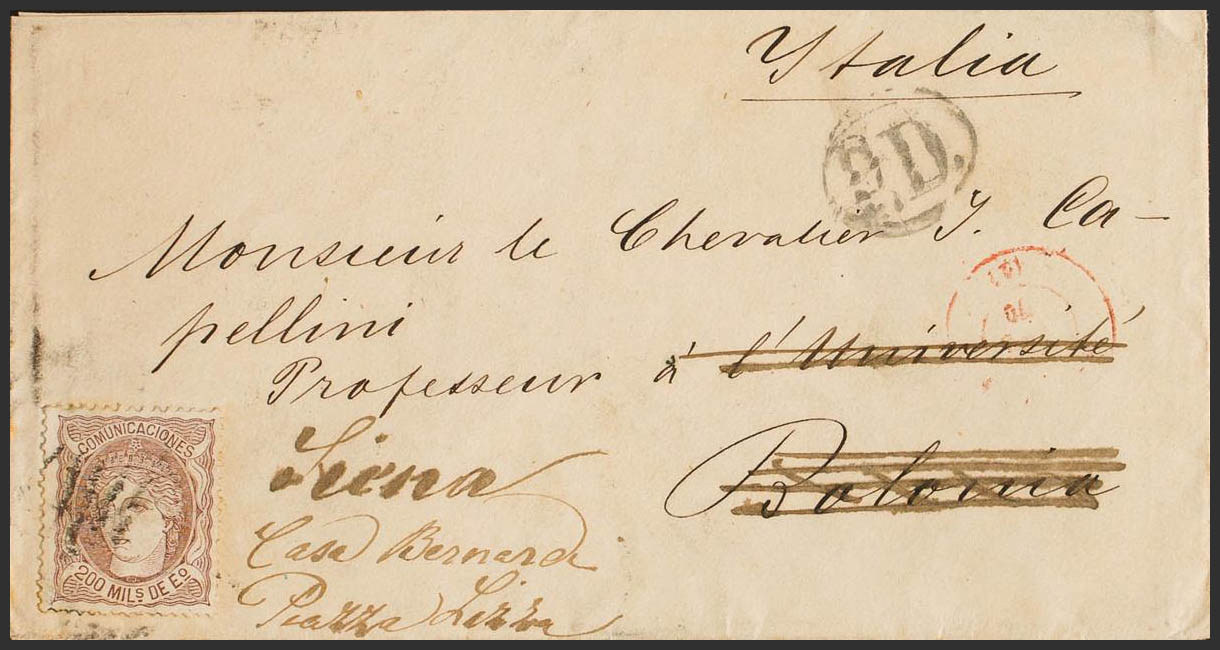 Ytalia
P.D.
Monsieur le Chevalier J. Ca-
pellini
70
Professeur à l'Université
Siena
Bolonia
Casa Bernardi
Piazza Lizza
COMUNICACIONES
200 MILS DE Eo